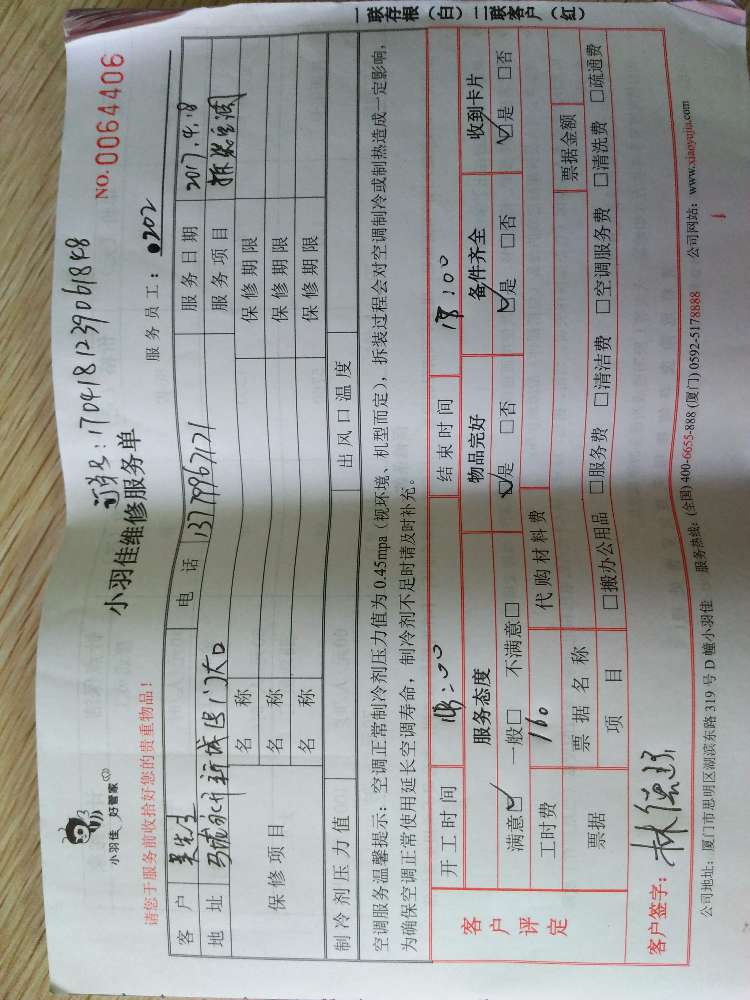 一联存根（白）二联客户（红）
NO.0064406
订单号：170418123906184B
小羽佳维修服务单
小羽佳 好管家
请您于服务前收拾好您的贵重物品！
服务员工：0202
客户 吴先生 电话 13799967121 服务日期 2017.4.18
地址 服务项目 拆装空调
保修项目 名称 保修期限
名称 保修期限
名称 保修期限
制冷剂压力值 出风口温度
空调服务温馨提示：空调正常制冷剂压力值为0.45mpa（视环境、机型而定），拆装过程会对空调制冷或制热造成一定影响，
为确保空调正常使用延长空调寿命，制冷剂不足时请及时补充。
客户评定
开工时间 结束时间 18:00
服务态度 物品完好 备件齐全 收到卡片
满意☑ 一般□ 不满意□ ☑是 □否 ☑是 □否 ☑是 □否
工时费 160 代购材料费
票据 票据名称 票据金额
项目 □搬办公用品 □服务费 □清洁费 □空调服务费 □清洗费 □疏通费
客户签字：
公司地址：厦门市思明区湖滨东路319号D幢小羽佳 服务热线：(全国)400-6655-888 (厦门)0592-5178888 公司网站：www.xiaoyujia.com